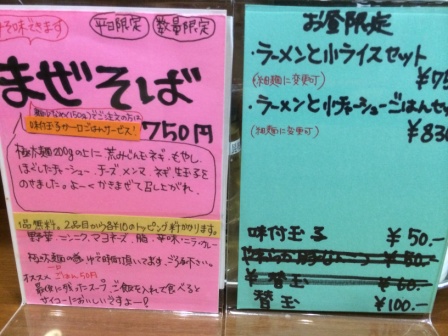 平日限定 数量限定
まぜそば
味付玉子 ごはんサービス!
750円
極太麺200gの上に 荒みじん玉ネギ、もやし、
ほぐしたチャーシュー、チーズ、メンマ、ネギ、生玉子を
のせました。よーくかきまぜて召し上がれ。
一品無料。2品目から各¥10のトッピング料かかります。
野菜 ニンニク、マヨネーズ、脂、辛味
オススメ ごはん50円
最後に残ったスープ、ご飯を入れて食べると
サイコーにおいしいですよー?
お昼限定
・ラーメンと小ライスセット
(細麺に変更可)
・ラーメンと小チャーシューごはんセ
(細麺に変更可)
¥830
味付玉子 ¥50.-
替玉 ¥60.-
替玉 ¥100.-